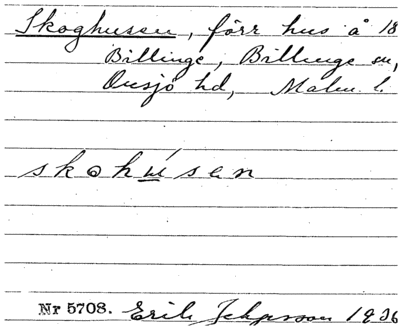 Skoghusen, förr hus å 18
Billinge, Billinge sn,
Onsjö hd, Malm. l.
skohúsen
Nr 5708. Erik 1936